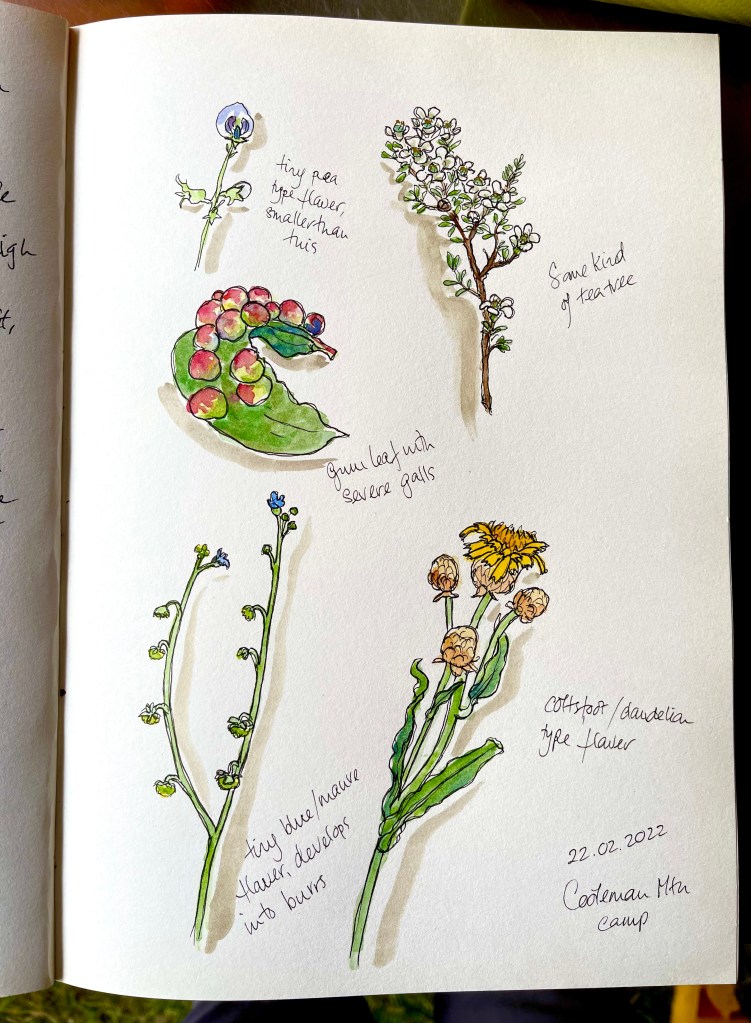 tiny pea
type flower,
smaller than
this
Some kind
of tea tree
gum leaf with
severe galls
tiny blue/mauve
flower, develops
into burrs
coltsfoot/dandelian
type flower
22.02.2022
Cooleman Mtn
camp
igh